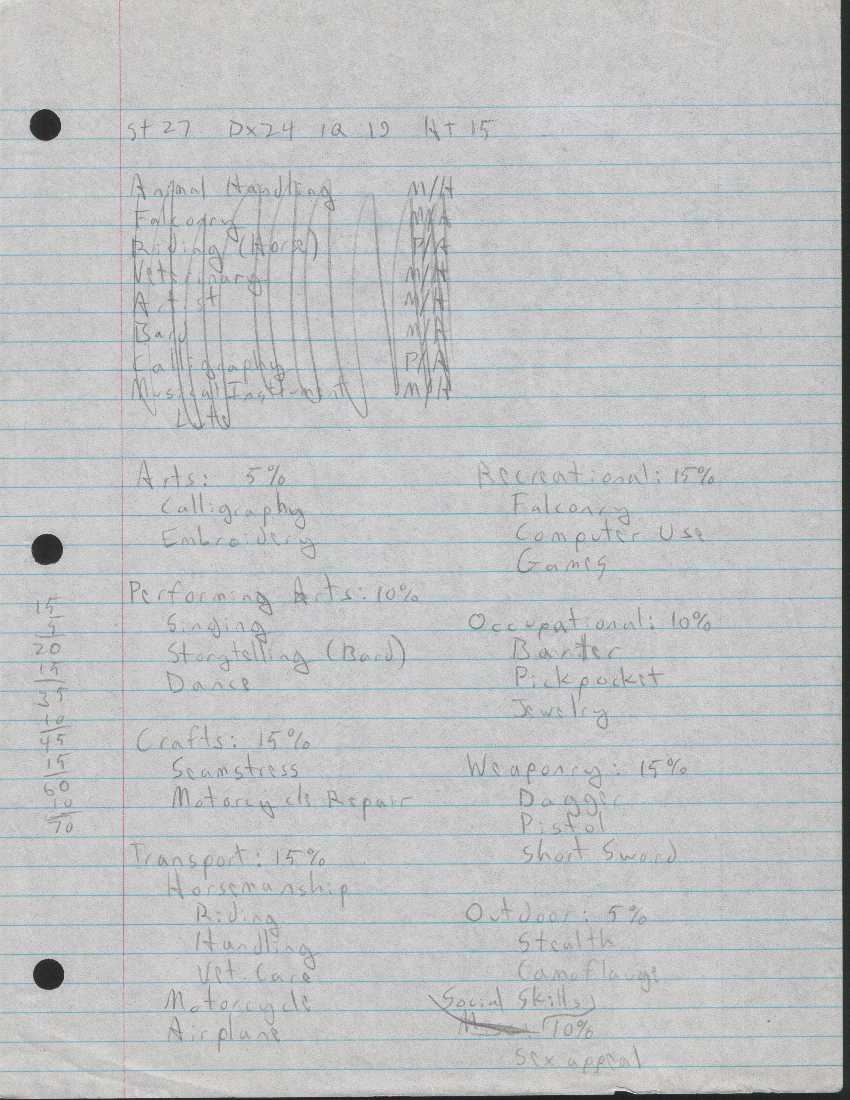 St 27 Dx 24 IQ 19 HT 15
Animal Handling M/H
Falconry M/A
Riding (Horse) P/A
Veterinary M/H
Artist M/H
Bard M/A
Calligraphy P/A
Musical Instrument M/H
Arts: 5%
Calligraphy
Embroidery
Performing Arts: 10%
Singing
Storytelling (Bard)
Dance
Crafts: 15%
Seamstress
Motorcycle Repair
Transport: 15%
Horsemanship
Riding
Handling
Vet. Care
Motorcycle
Airplane
15
5
20
15
35
10
45
15
60
10
70
Recreational: 15%
Falconry
Computer Use
Games
Occupational: 10%
Barter
Pickpocket
Jewelry
Weaponry: 15%
Dagger
Pistol
Short Sword
Outdoor: 5%
Stealth
Camoflauge
Social Skills
10%
Sex appeal